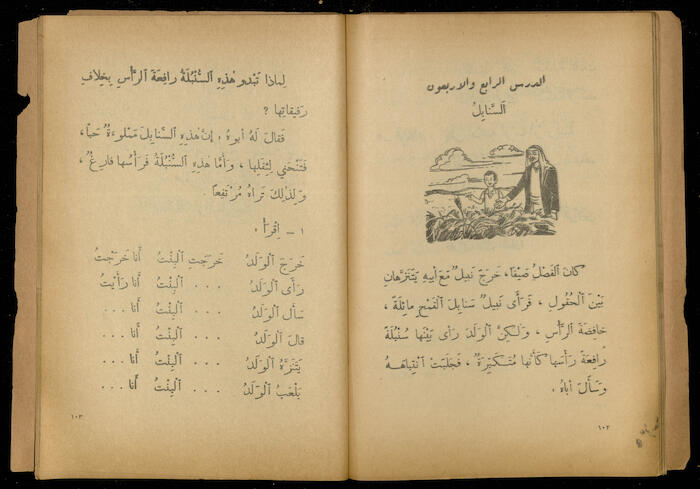 الدرس الرابع والاربعون
اَلسَّنابِلُ
كانَ اَلْفَصْلُ صَيْفًا، خَرَجَ نَبيلٌ مَعَ أَبيهِ يَتَنَزَّهانِ
بَيْنَ اَلْحُقولِ ، فَرَأَى نَبيلٌ سَنابِلَ اَلْقَمْحِ مائِلَةً ،
خافِضَةَ اَلرَّأْسِ ، وَلكِنَّ اَلْوَلَدَ رَأَى بَيْنَها سُنْبُلَةً
رافِعَةً رَأْسَها كَأَنَّها مُتَكَبِّرَةٌ ، فَجَلَبَتْ اَنْتِباهَهُ
وَسَأَلَ أَباهُ .
١٠٢
لِماذا تَبْدو هٰذِهِ اَلسُّنْبُلَةُ رافِعَةَ اَلرَّأْسِ بِخِلافِ
رَفيقاتِها ؟
فَقالَ لَهُ أَبوهُ . إِنَّ هٰذِهِ اَلسَّنابِلَ مَمْلوءَةٌ حَبًّا ،
فَتَنْحَني لِثِقَلِها ، وَأَمّا هٰذِهِ اَلسُّنْبُلَةُ فَرَأْسُها فارِغٌ ،
وَلِذلِكَ تَراهُ مُرْتَفِعًا
١ – اِقْرَأْ .
خَرَجَ اَلْوَلَدُ خَرَجَتِ اَلْبِنْتُ أَنا خَرَجْتُ
رَأَى اَلْوَلَدُ . . . اَلْبِنْتُ أَنا رَأَيْتُ
سَأَلَ اَلْوَلَدُ . . . اَلْبِنْتُ أَنا . . .
قالَ اَلْوَلَدُ . . . اَلْبِنْتُ أَنا . . .
يَتَنَزَّهُ اَلْوَلَدُ . . . اَلْبِنْتُ أَنا . . .
يَلْعَبُ اَلْوَلَدُ . . . اَلْبِنْتُ أَنا . . .
١٠٣